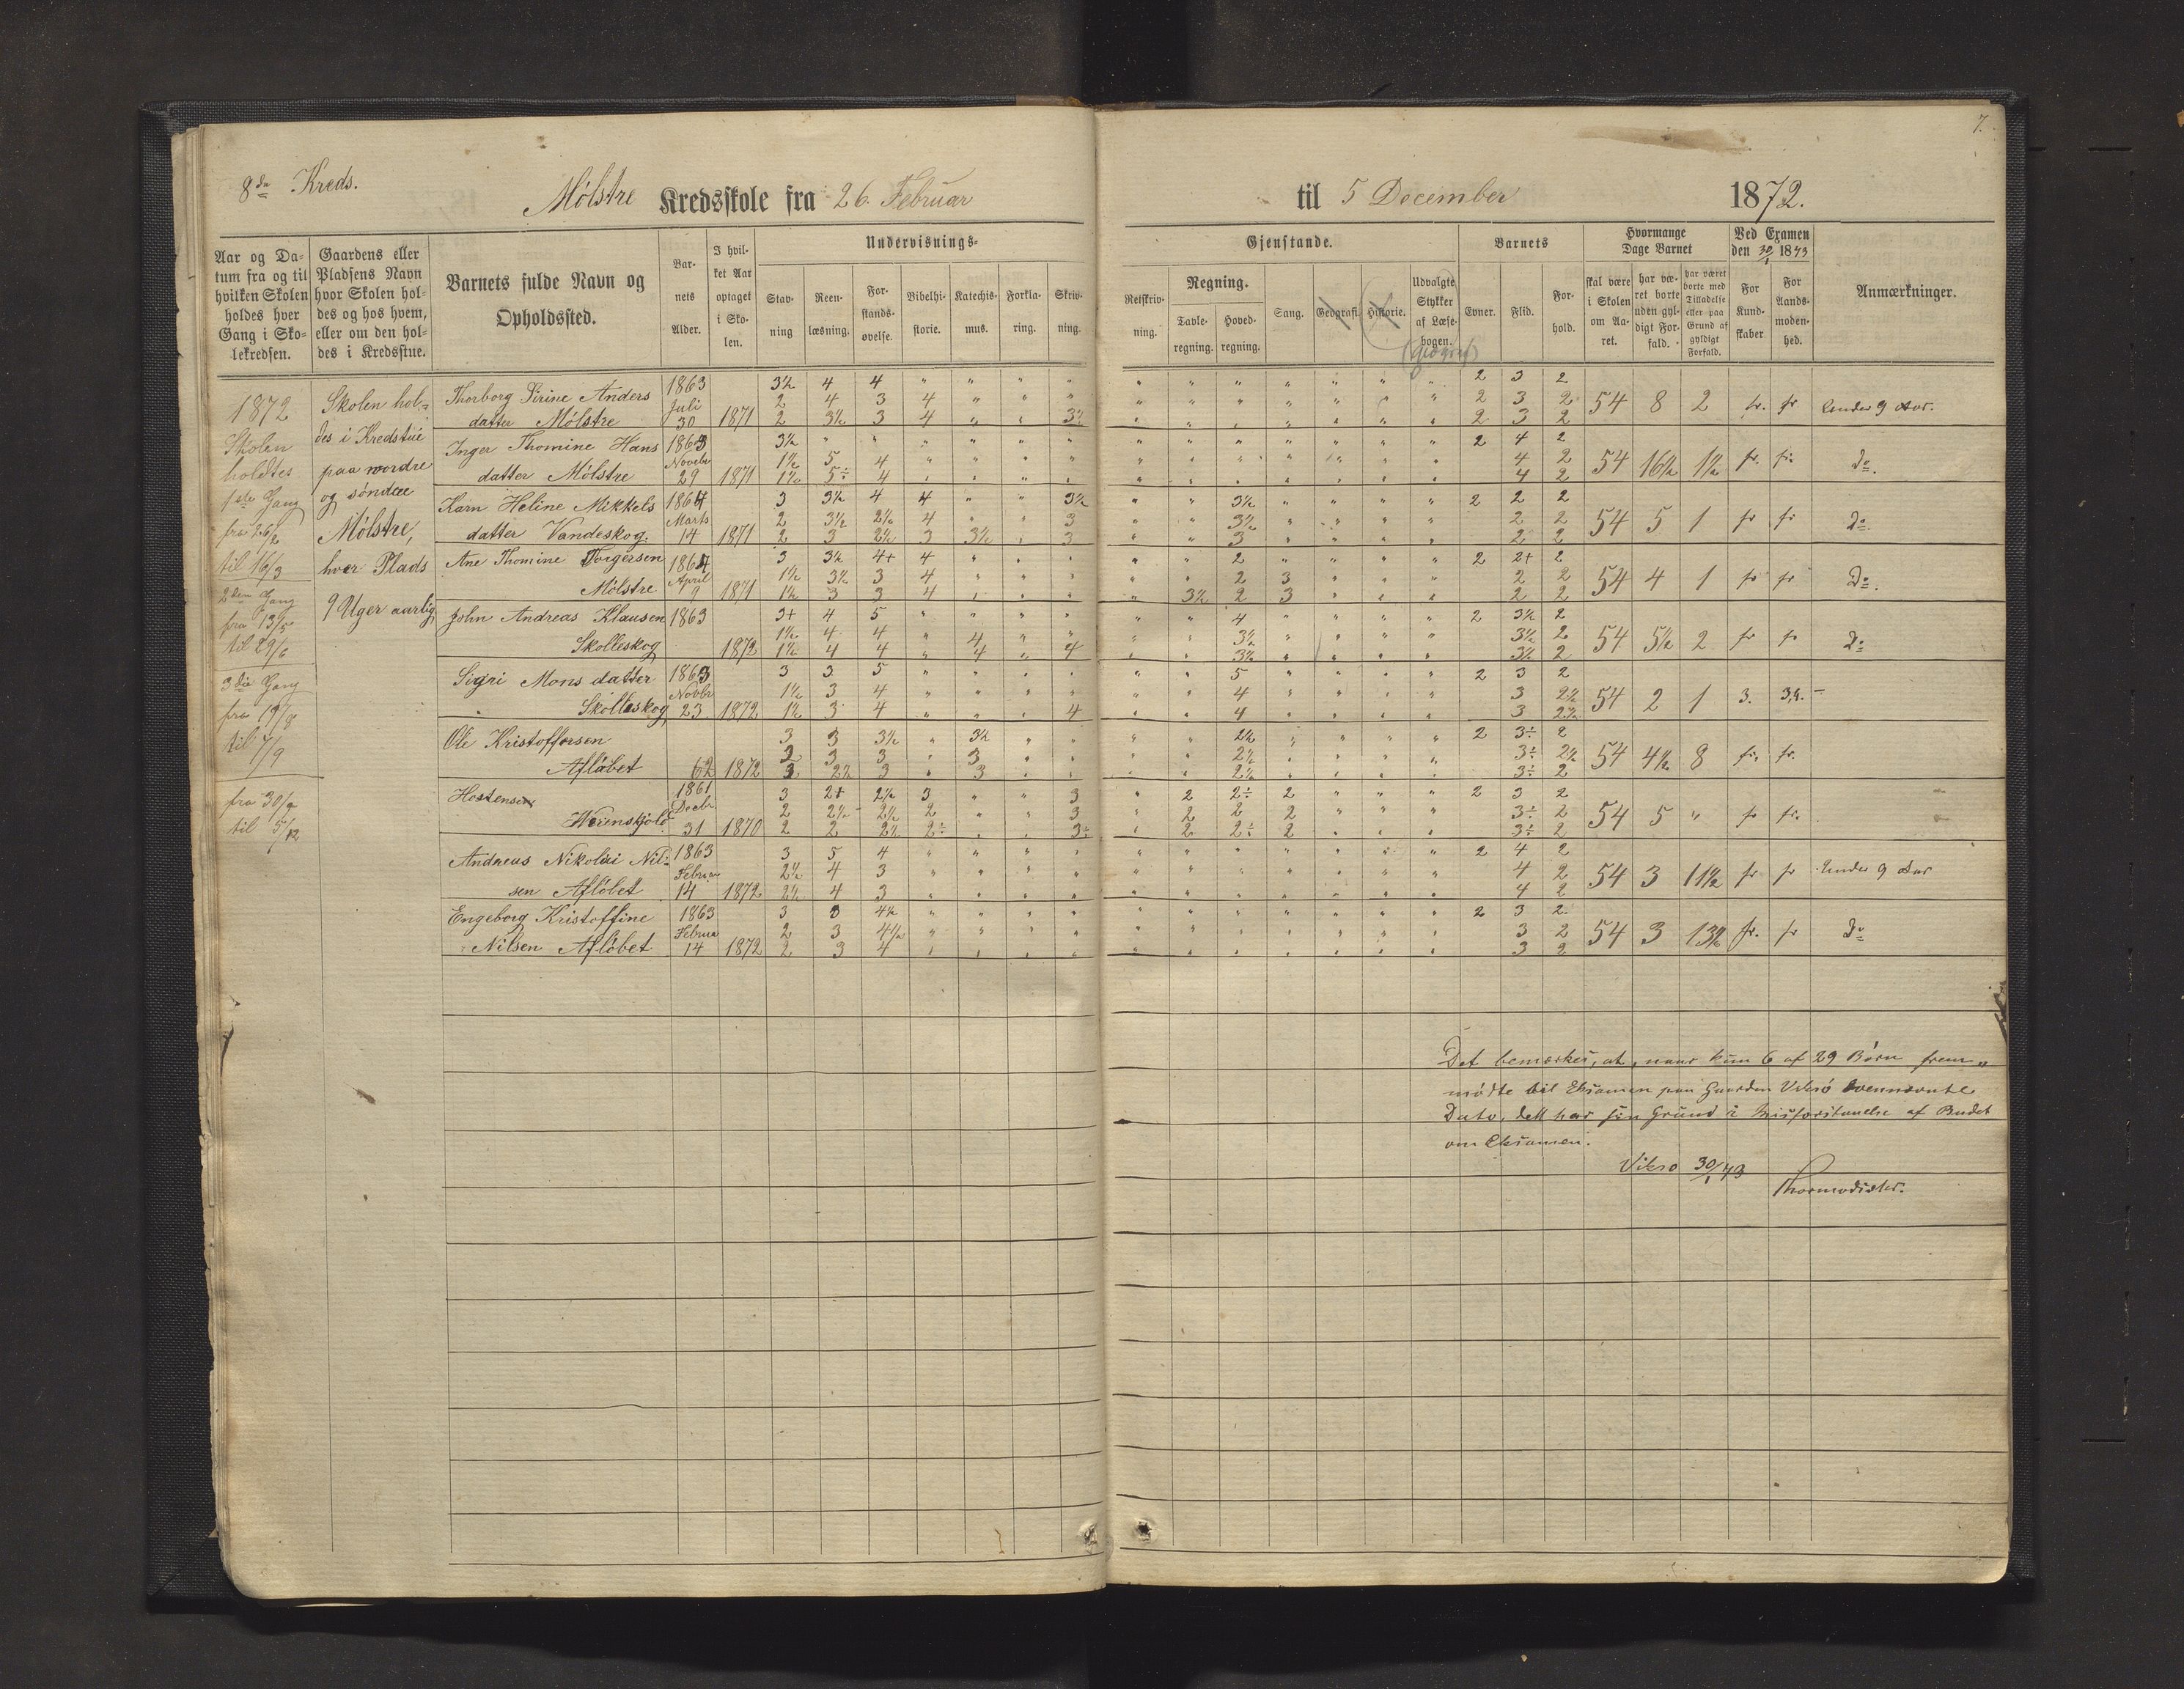 7.
8de Kreds.
Mølstre Kredsskole fra 26. Februar til 5 December 1872.
Aar og Datum fra og til hvilken Skolen holdes hver Gang i Skolekredsen.
Gaardens eller Pladsens Navn hvor Skolen holdes og hos hvem, eller om den holdes i Kredsstue.
Barnets fulde Navn og Opholdssted.
Barnets Alder.
I hvilket Aar optaget i Skolen.
Undervisnings-
Stavning
Reenlæsning.
Forstandsøvelse.
Bibelhistorie.
Katechismus.
Forklaring.
Skrivning.
Gjenstande.
Retskrivning.
Regning.
Tavleregning.
Hovedregning.
Sang.
Geografi.
Historie.
Udvalgte Stykker af Læsebogen.
(Geograf)
Barnets
Evner.
Flid.
Forhold.
Hvormange Dage Barnet
skal være i Skolen om Aaret.
har været borte uden gyldigt Forfald.
har været borte med Tilladelse eller paa Grund af gyldigt Forfald.
Ved Examen den 30/1 1873
For Kundskaber
For Aandsmodenhed.
Anmærkninger.
1872
Skolen
holdtes
1ste Gang
fra 26/2
til 16/3
2den Gang
fra 13/5
til 29/6
3die Gang
fra 19/8
til 7/9
fra 30/9
til 5/12
Skolen hol-
des i Kredstue
paa nordre
og søndre
Mølstre,
hver Plads
9 Uger aarlig
Thorborg Sirine Anders 1863 3½ 4 4 " " " " " " " " " " " 2 3 2
Juli 2 4 3 4 " " " " " " " " " " 2 3 2 54 8 2 fr. fr Under 9 Aar.
datter Mølstre 30 1871 2 3½ 3 4 " " 3÷ " " " " " " " 2 3 2
Inger Thomine Hans 1863 3½ " " " " " " " " " " " " " 2 4 2
Novebr 1½ 5 4 " " " " " " " " " " " 4 2 54 16½ 1½ fr. fr. do.
datter Mølstre 29 1871 1½ 5÷ 4 " " " " " " " " " " " 4 2
Karn Heline Mikkels 1864 3 3½ 4 4 " " 3½ " " 3½ " " " " 2 2 2
Marts 2 3½ 2½ 4 " " 3 " " 3½ " " " " 2 2 54 5 1 fr fr do.
datter Vandeskog. 14 1871 2 3 2½ 3 3½ " 3 " " 3 " " " " 2 2
Ane Thomine Torgersen 1864 3 3½ 4+ 4 " " " " " 2 " " " " 2 2+ 2
April 1½ 3½ 3 4 " " " " " 2 3 " " " 2 2 54 4 1 fr fr Do.
Mølstre 9 1871 1½ 3 3 4 " " " " 3½ 2 3 " " " 2 2
John Andreas Klausen 1863 3+ 4 5 " " " " " " 4 " " " " 2 3½ 2
1½ 4 4 " 4 " " " " 3½ " " " " 3½ 2 54 5½ 2 fr fr do
Skolleskog 1872 1½ 4 4 " 4 " 4 " " 3½ " " " " 3½ 2
Sigri Mons datter 1863 3 3 5 " " " " " " 5 " " " " 2 3 2
Novbr 1½ 3 4 " " " " " " 4 " " " " 3 2½ 54 2 1 3.
Skolleskog 23 1872 1½ 3 4 " " " 4 " " 4 " " " " 3 2½
Ole Kristoffersen 3 3 3½ " 3½ " " " " 2½ " " " " 2 3÷ 2
2 3 3 " 3 " " " " 2½ " " " " 3÷ 2½ 54 4½ 8 fr. fr.
Afløbet 62 1872 3 2½ 3 " 3 " " " " 2½ " " " " 3÷ 2
Hostensen 1861 3 2+ 2½ 3 " " 3 " 2 2÷ 2 " " " 2 3 2
Decbr 2 2½ 2½ 2 " " 3 " 2 2 2 " " " 3÷ 2 54 5 " fr fr.
Werenskjold 31 1870 2 2 2½ 2÷ " " 3÷ " 2 2÷ 2 " " " 3÷ 2
Andreas Nikolai Nil- 1863 3 5 4 " " " " " " " " " " " 2 4 2
Februar 2½ 4 3 " " " " " " " " " " " 4 2 54 3 11½ fr fr Under 9 Aar
sen Afløbet 14 1872 2½ 4 3 " " " " " " " " " " " 4 2
Engeborg Kristoffine 1863 3 3 4½ " " " " " " " " " " " 2 3 2
Februa 2 3 4½ " " " " " " " " " " " 3 2 54 3 13½ fr. fr do
Nilsen Afløbet 14 1872 2 3 4 " " " " " " " " " " " 3 2
Det bemærkes, at, naar kun 6 af 29 Børn frem-
mødte til Eksamen paa Gaarden Viksø ovennævnte
Dato, dett har sin Grund i Misforstaaelse af Budet
om Eksamen.
Viksø 30/1 73
Thormodsæter.